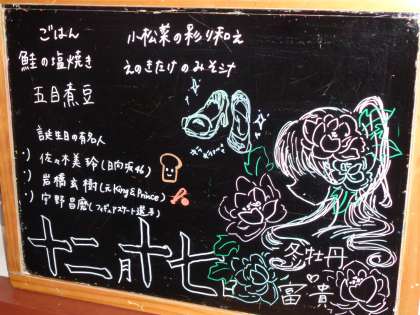 ごはん
鮭の塩焼き
五目煮豆
小松菜の彩り和え
えのきたけのみそ汁
誕生日の有名人
・) 佐々木美玲(日向坂46)
・) 岩橋玄樹(元King&Prince)
・) 宇野昌磨(フィギュアスケート選手)
十二月十七日
冬牡丹
富貴